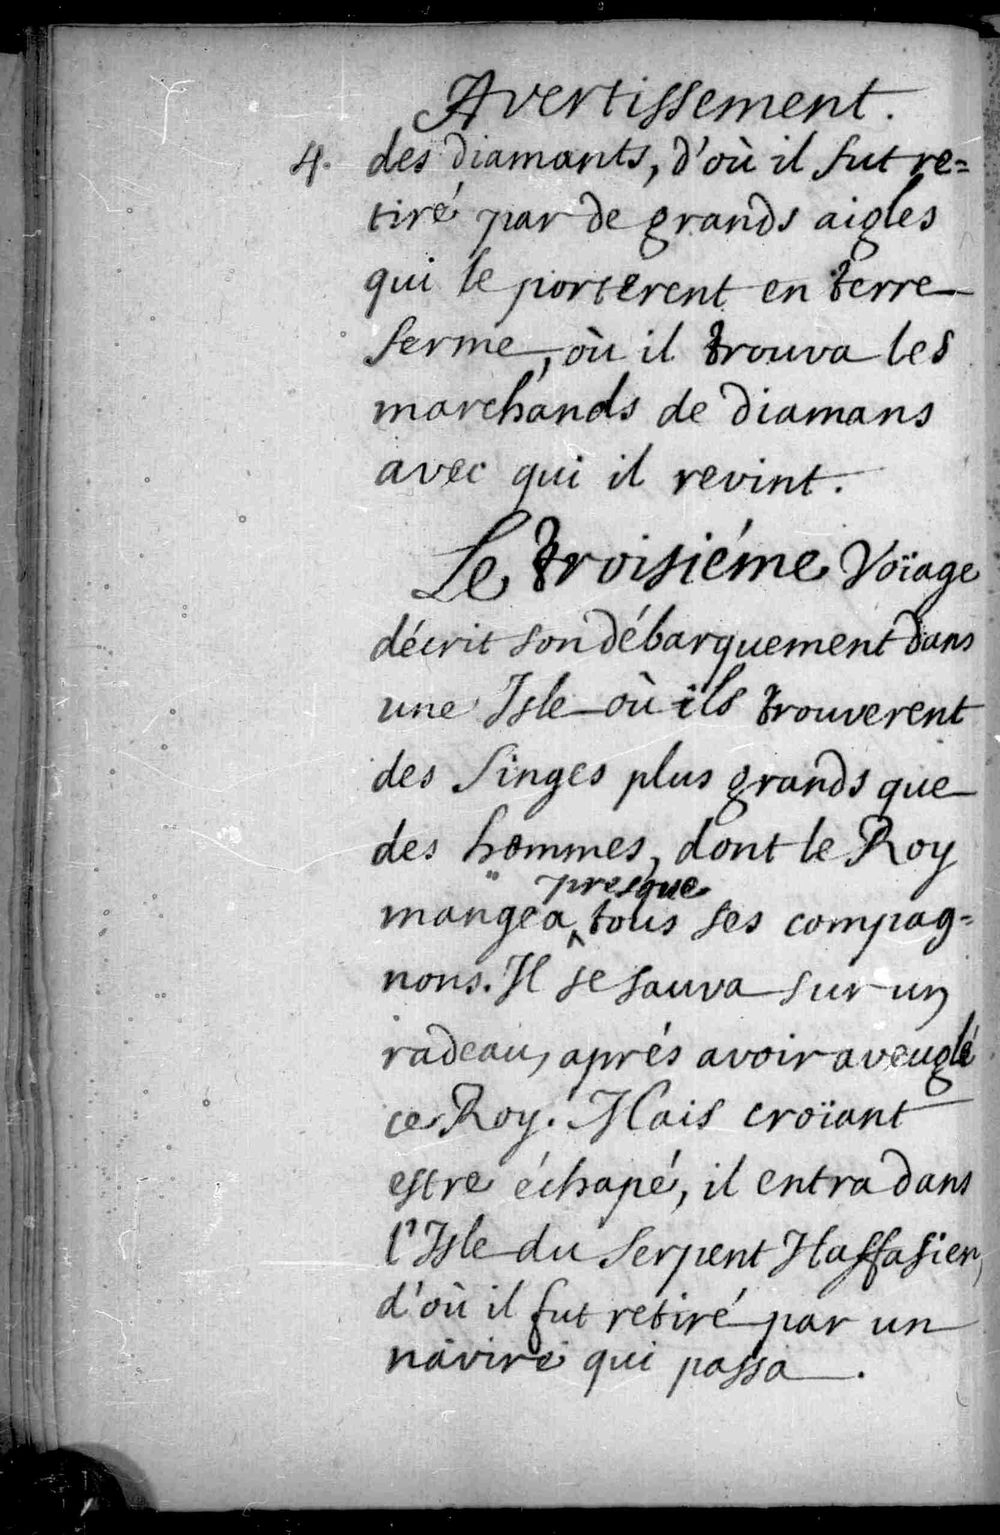 Avertissement.
4. des diamants, d'où il fut re=
tiré par de grands aigles
qui le porterent en terre
ferme, où il trouva les
marchands de diamans
avec qui il revint.
Le troisiéme Voïage
décrit son débarquement dans
une Isle où ils trouverent
des singes plus grands que
des hommes, dont le Roy
presque
mangea tous ses compag=
nons. Il se sauva sur un
radeau, aprés avoir aveuglé
ce Roy. Mais croïant
estre échapé, il entra dans
l'Isle du Serpent
d'où il fut retiré par un
navire qui passa.